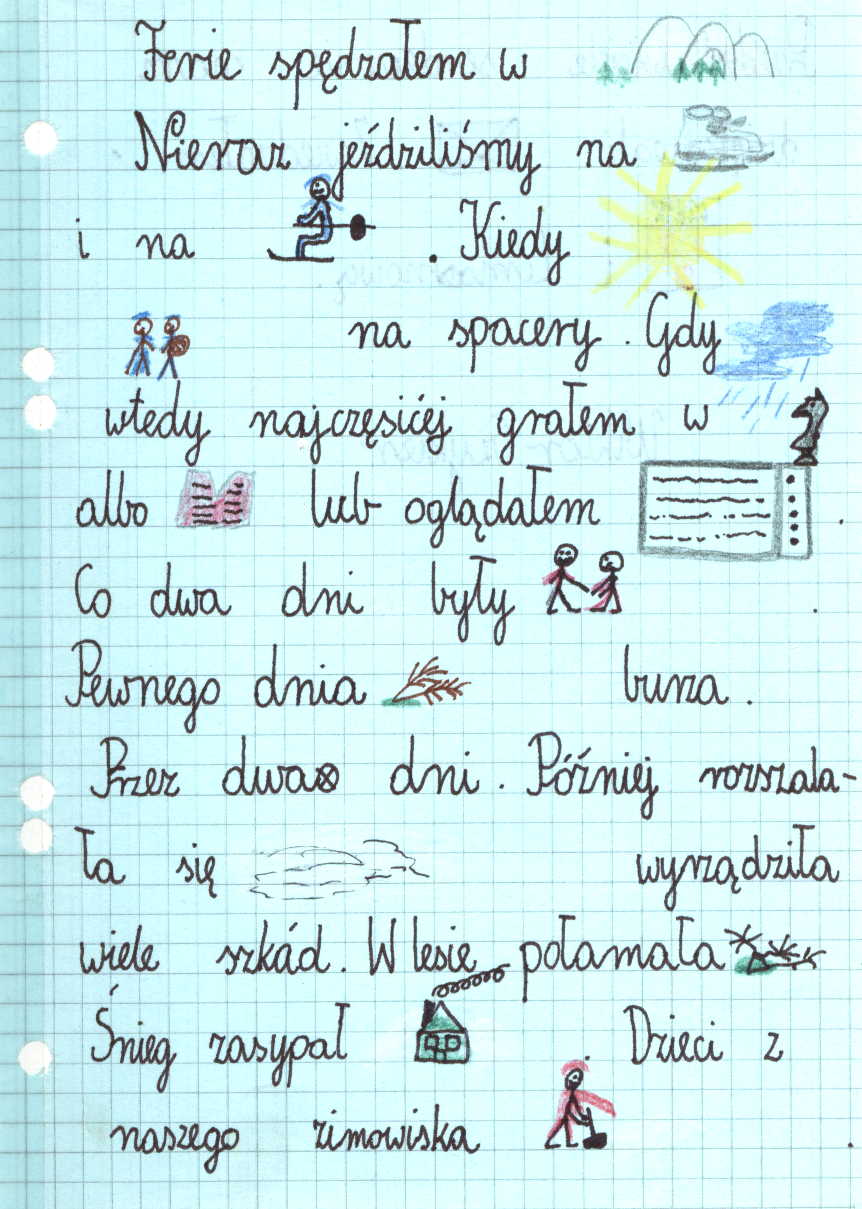 Ferie spędzałem w
Nieraz jeździliśmy na
i na . Kiedy
na spacery. Gdy
wtedy najczęsićéj grałem w
albo lub oglądałem .
Co dwa dni były .
Pewnego dnia burza.
Przez dwa dni. Później rozszala-
ła się wyrządziła
wiele szkód. W lesie połamała
Śnieg zasypał . Dzieci z
naszego zimowiska .